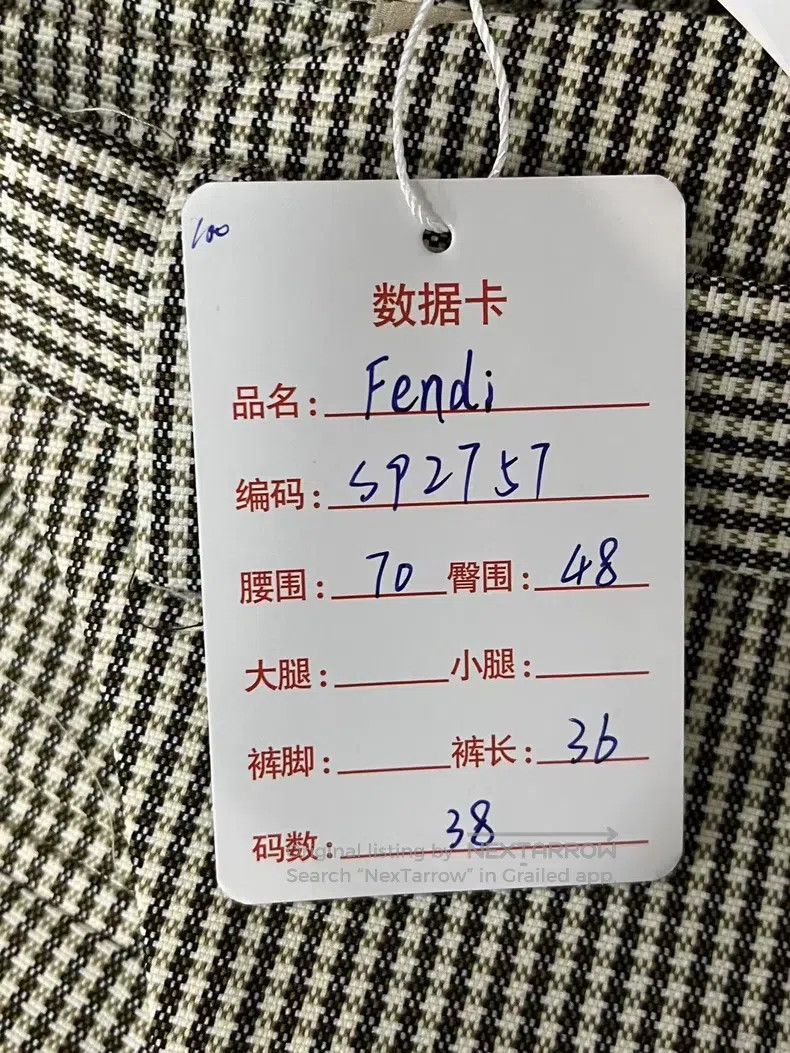 100
数据卡
品名: Fendi
编码: SP2757
腰围: 70 臀围: 48
大腿: 小腿:
裤脚: 裤长: 36
码数: 38
Original listing by NEXTARROW
Search “NexTarrow” in Grailed app.